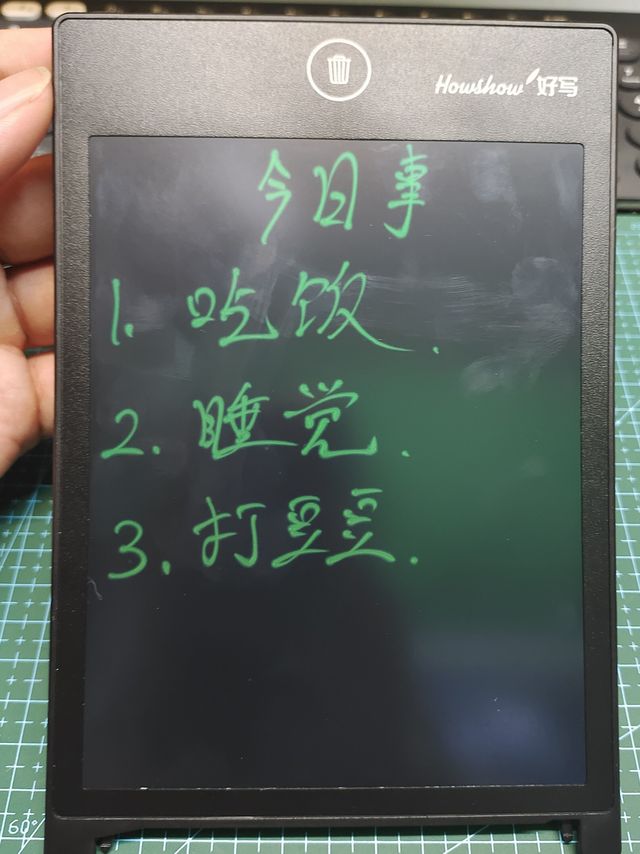 Howshow 好写
今日事
1. 吃饭.
2. 睡觉.
3. 打豆豆.
60°